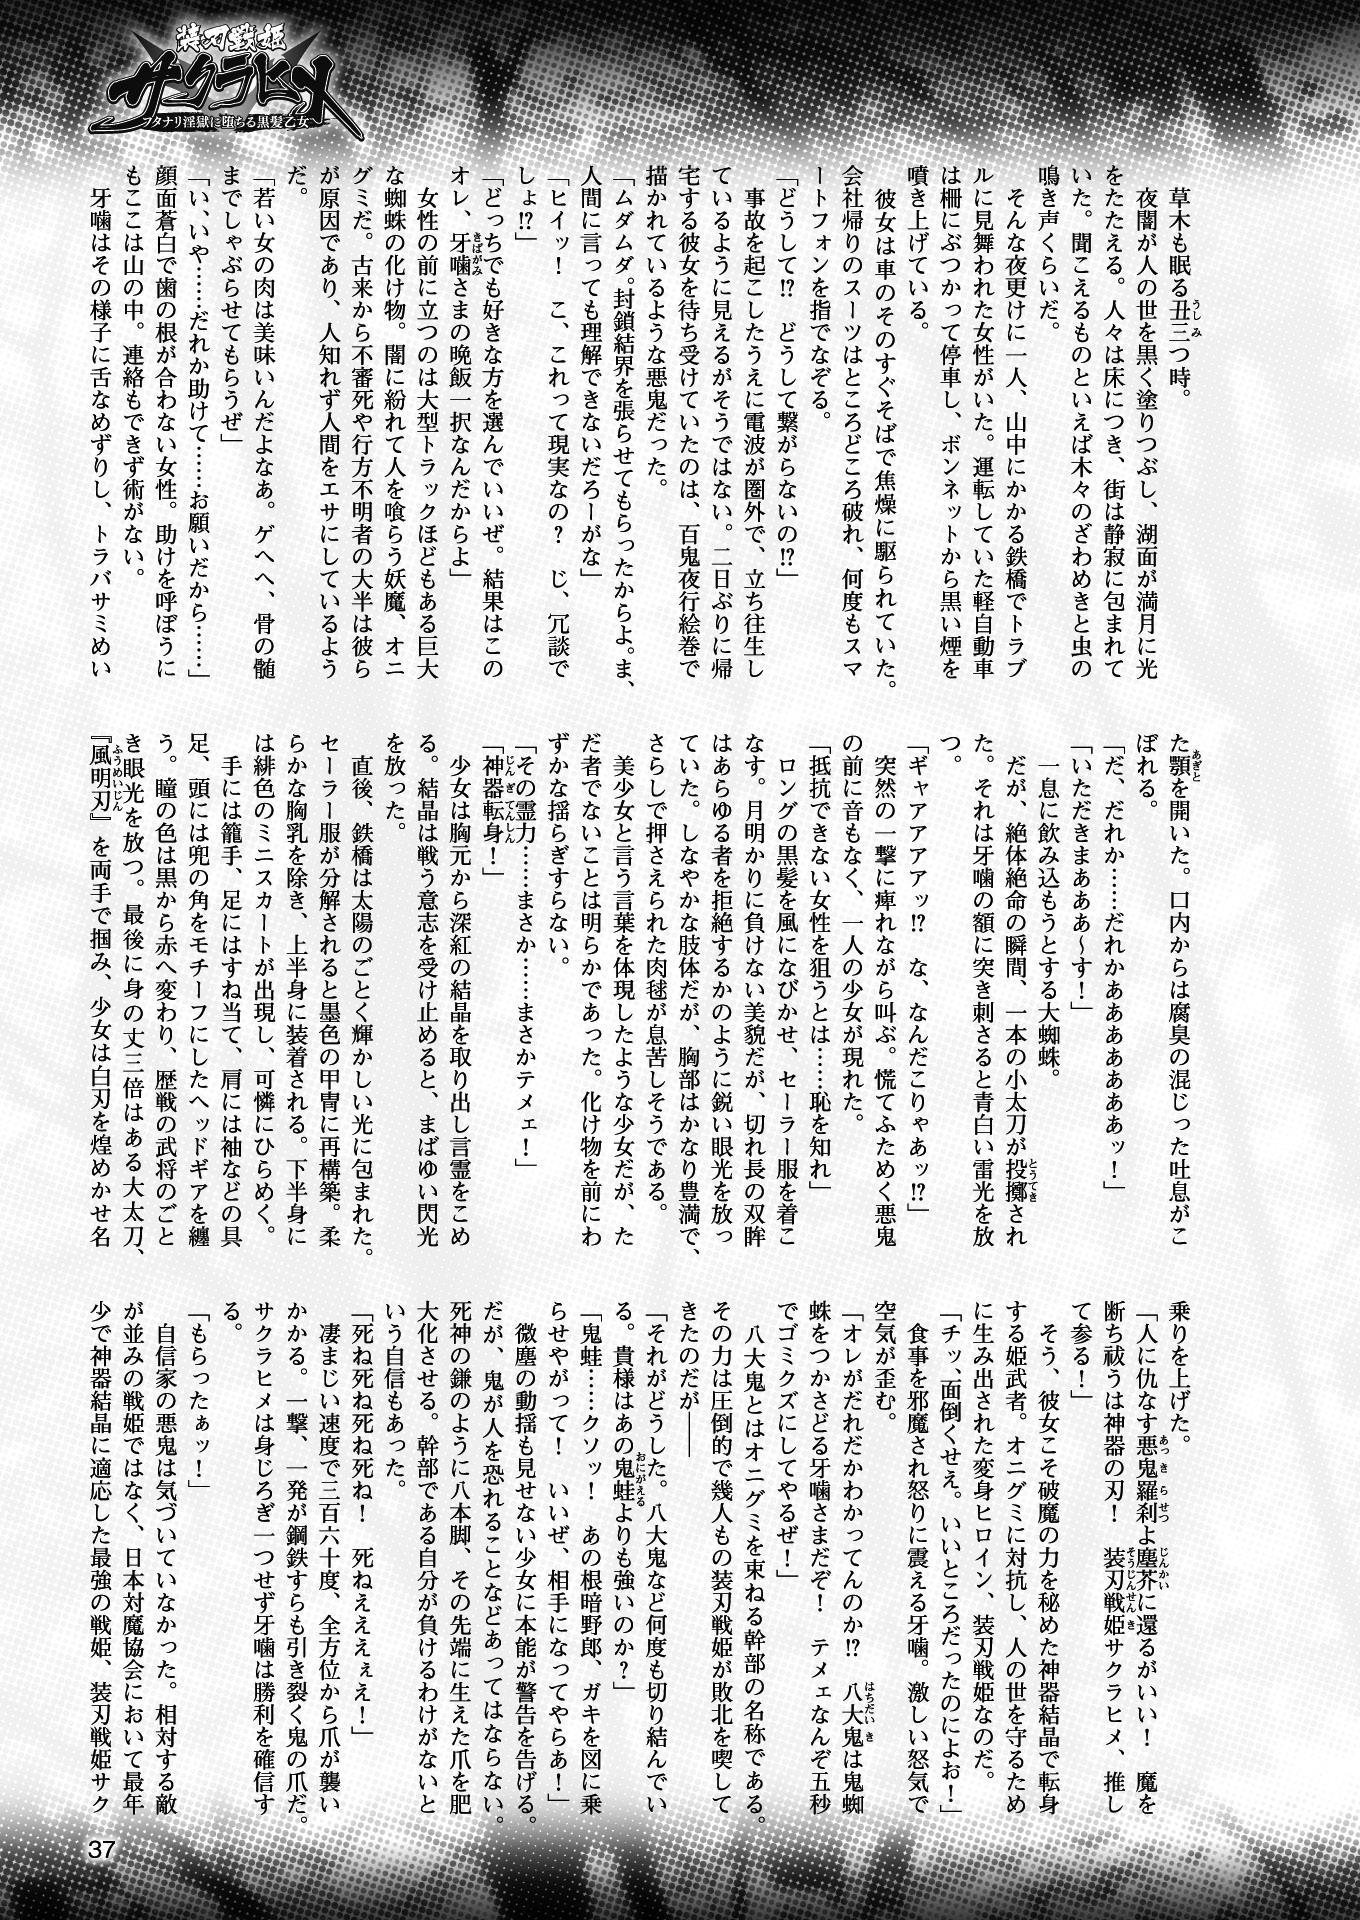 装刃戦姫
サクラヒメ
フタナリ淫獄に堕ちる黒髪乙女
草木も眠る丑三つ時。
夜闇が人の世を黒く塗りつぶし、湖面が満月に光
をたたえる。人々は床につき、街は静寂に包まれて
いた。聞こえるものといえば木々のざわめきと虫の
鳴き声くらいだ。
そんな夜更けに一人、山中にかかる鉄橋でトラブ
ルに見舞われた女性がいた。運転していた軽自動車
は柵にぶつかって停車し、ボンネットから黒い煙を
噴き上げている。
彼女は車のそのすぐそばで焦燥に駆られていた。
会社帰りのスーツはところどころ破れ、何度もスマ
ートフォンを指でなぞる。
「どうして!?　どうして繋がらないの!?」
事故を起こしたうえに電波が圏外で、立ち往生し
ているように見えるがそうではない。二日ぶりに帰
宅する彼女を待ち受けていたのは、百鬼夜行絵巻で
描かれているような悪鬼だった。
「ムダムダ。封鎖結界を張らせてもらったからよ。ま、
人間に言っても理解できないだろーがな」
「ヒイッ！　こ、これって現実なの？　じ、冗談で
しょ!?」
「どっちでも好きな方を選んでいいぜ。結果はこの
オレ、牙噛さまの晩飯一択なんだからよ」
女性の前に立つのは大型トラックほどもある巨大
な蜘蛛の化け物。闇に紛れて人を喰らう妖魔、オニ
グミだ。古来から不審死や行方不明者の大半は彼ら
が原因であり、人知れず人間をエサにしているよう
だ。
「若い女の肉は美味いんだよなあ。ゲヘヘ、骨の髄
までしゃぶらせてもらうぜ」
「い、いや……だれか助けて……お願いだから……」
顔面蒼白で歯の根が合わない女性。助けを呼ぼうに
もここは山の中。連絡もできず術がない。
牙噛はその様子に舌なめずりし、トラバサミめい
た顎を開いた。口内からは腐臭の混じった吐息がこ
ぼれる。
「だ、だれか……だれかああああああッ！」
「いただきまあああ〜す！」
一息に飲み込もうとする大蜘蛛。
だが、絶体絶命の瞬間、一本の小太刀が投擲され
た。それは牙噛の額に突き刺さると青白い雷光を放
つ。
「ギャアアアアッ!?　な、なんだこりゃあッ!?」
突然の一撃に痺れながら叫ぶ。慌てふためく悪鬼
の前に音もなく、一人の少女が現れた。
「抵抗できない女性を狙うとは……恥を知れ」
ロングの黒髪を風になびかせ、セーラー服を着こ
なす。月明かりに負けない美貌だが、切れ長の双眸
はあらゆる者を拒絶するかのように鋭い眼光を放っ
ていた。しなやかな肢体だが、胸部はかなり豊満で、
さらしで押さえられた肉毬が息苦しそうである。
美少女と言う言葉を体現したような少女だが、た
だ者でないことは明らかであった。化け物を前にわ
ずかな揺らぎすらない。
「その霊力……まさか……まさかテメェ！」
「神器転身！」
少女は胸元から深紅の結晶を取り出し言霊をこめ
る。結晶は戦う意志を受け止めると、まばゆい閃光
を放った。
直後、鉄橋は太陽のごとく輝かしい光に包まれた。
セーラー服が分解されると墨色の甲冑に再構築。柔
らかな胸乳を除き、上半身に装着される。下半身に
は緋色のミニスカートが出現し、可憐にひらめく。
手には籠手、足にはすね当て、肩には袖などの具
足、頭には兜の角をモチーフにしたヘッドギアを纏
う。瞳の色は黒から赤へ変わり、歴戦の武将のごと
き眼光を放つ。最後に身の丈三倍はある大太刀、
『風明刃』を両手で掴み、少女は白刃を煌めかせ名
乗りを上げた。
「人に仇なす悪鬼羅刹よ塵芥に還るがいい！　魔を
断ち祓うは神器の刃！　装刃戦姫サクラヒメ、推し
て参る！」
そう、彼女こそ破魔の力を秘めた神器結晶で転身
する姫武者。オニグミに対抗し、人の世を守るため
に生み出された変身ヒロイン、装刃戦姫なのだ。
「チッ、面倒くせえ。いいところだったのによお！」
食事を邪魔され怒りに震える牙噛。激しい怒気で
空気が歪む。
「オレがだれだかわかってんのか!?　八大鬼は鬼蜘
蛛をつかさどる牙噛さまだぞ！　テメェなんぞ五秒
でゴミクズにしてやるぜ！」
八大鬼とはオニグミを束ねる幹部の名称である。
その力は圧倒的で幾人もの装刃戦姫が敗北を喫して
きたのだが――
「それがどうした。八大鬼など何度も切り結んでい
る。貴様はあの鬼蛙よりも強いのか？」
「鬼蛙……クソッ！　あの根暗野郎、ガキを図に乗
らせやがって！　いいぜ、相手になってやらあ！」
微塵の動揺も見せない少女に本能が警告を告げる。
だが、鬼が人を恐れることなどあってはならない。
死神の鎌のように八本脚、その先端に生えた爪を肥
大化させる。幹部である自分が負けるわけがないと
いう自信もあった。
「死ね死ね死ね死ね！　死ねえええぇえ！」
凄まじい速度で三百六十度、全方位から爪が襲い
かかる。一撃、一発が鋼鉄すらも引き裂く鬼の爪だ。
サクラヒメは身じろぎ一つせず牙噛は勝利を確信す
る。
「もらったぁッ！」
自信家の悪鬼は気づいていなかった。相対する敵
が並みの戦姫ではなく、日本対魔協会において最年
少で神器結晶に適応した最強の戦姫、装刃戦姫サク
37